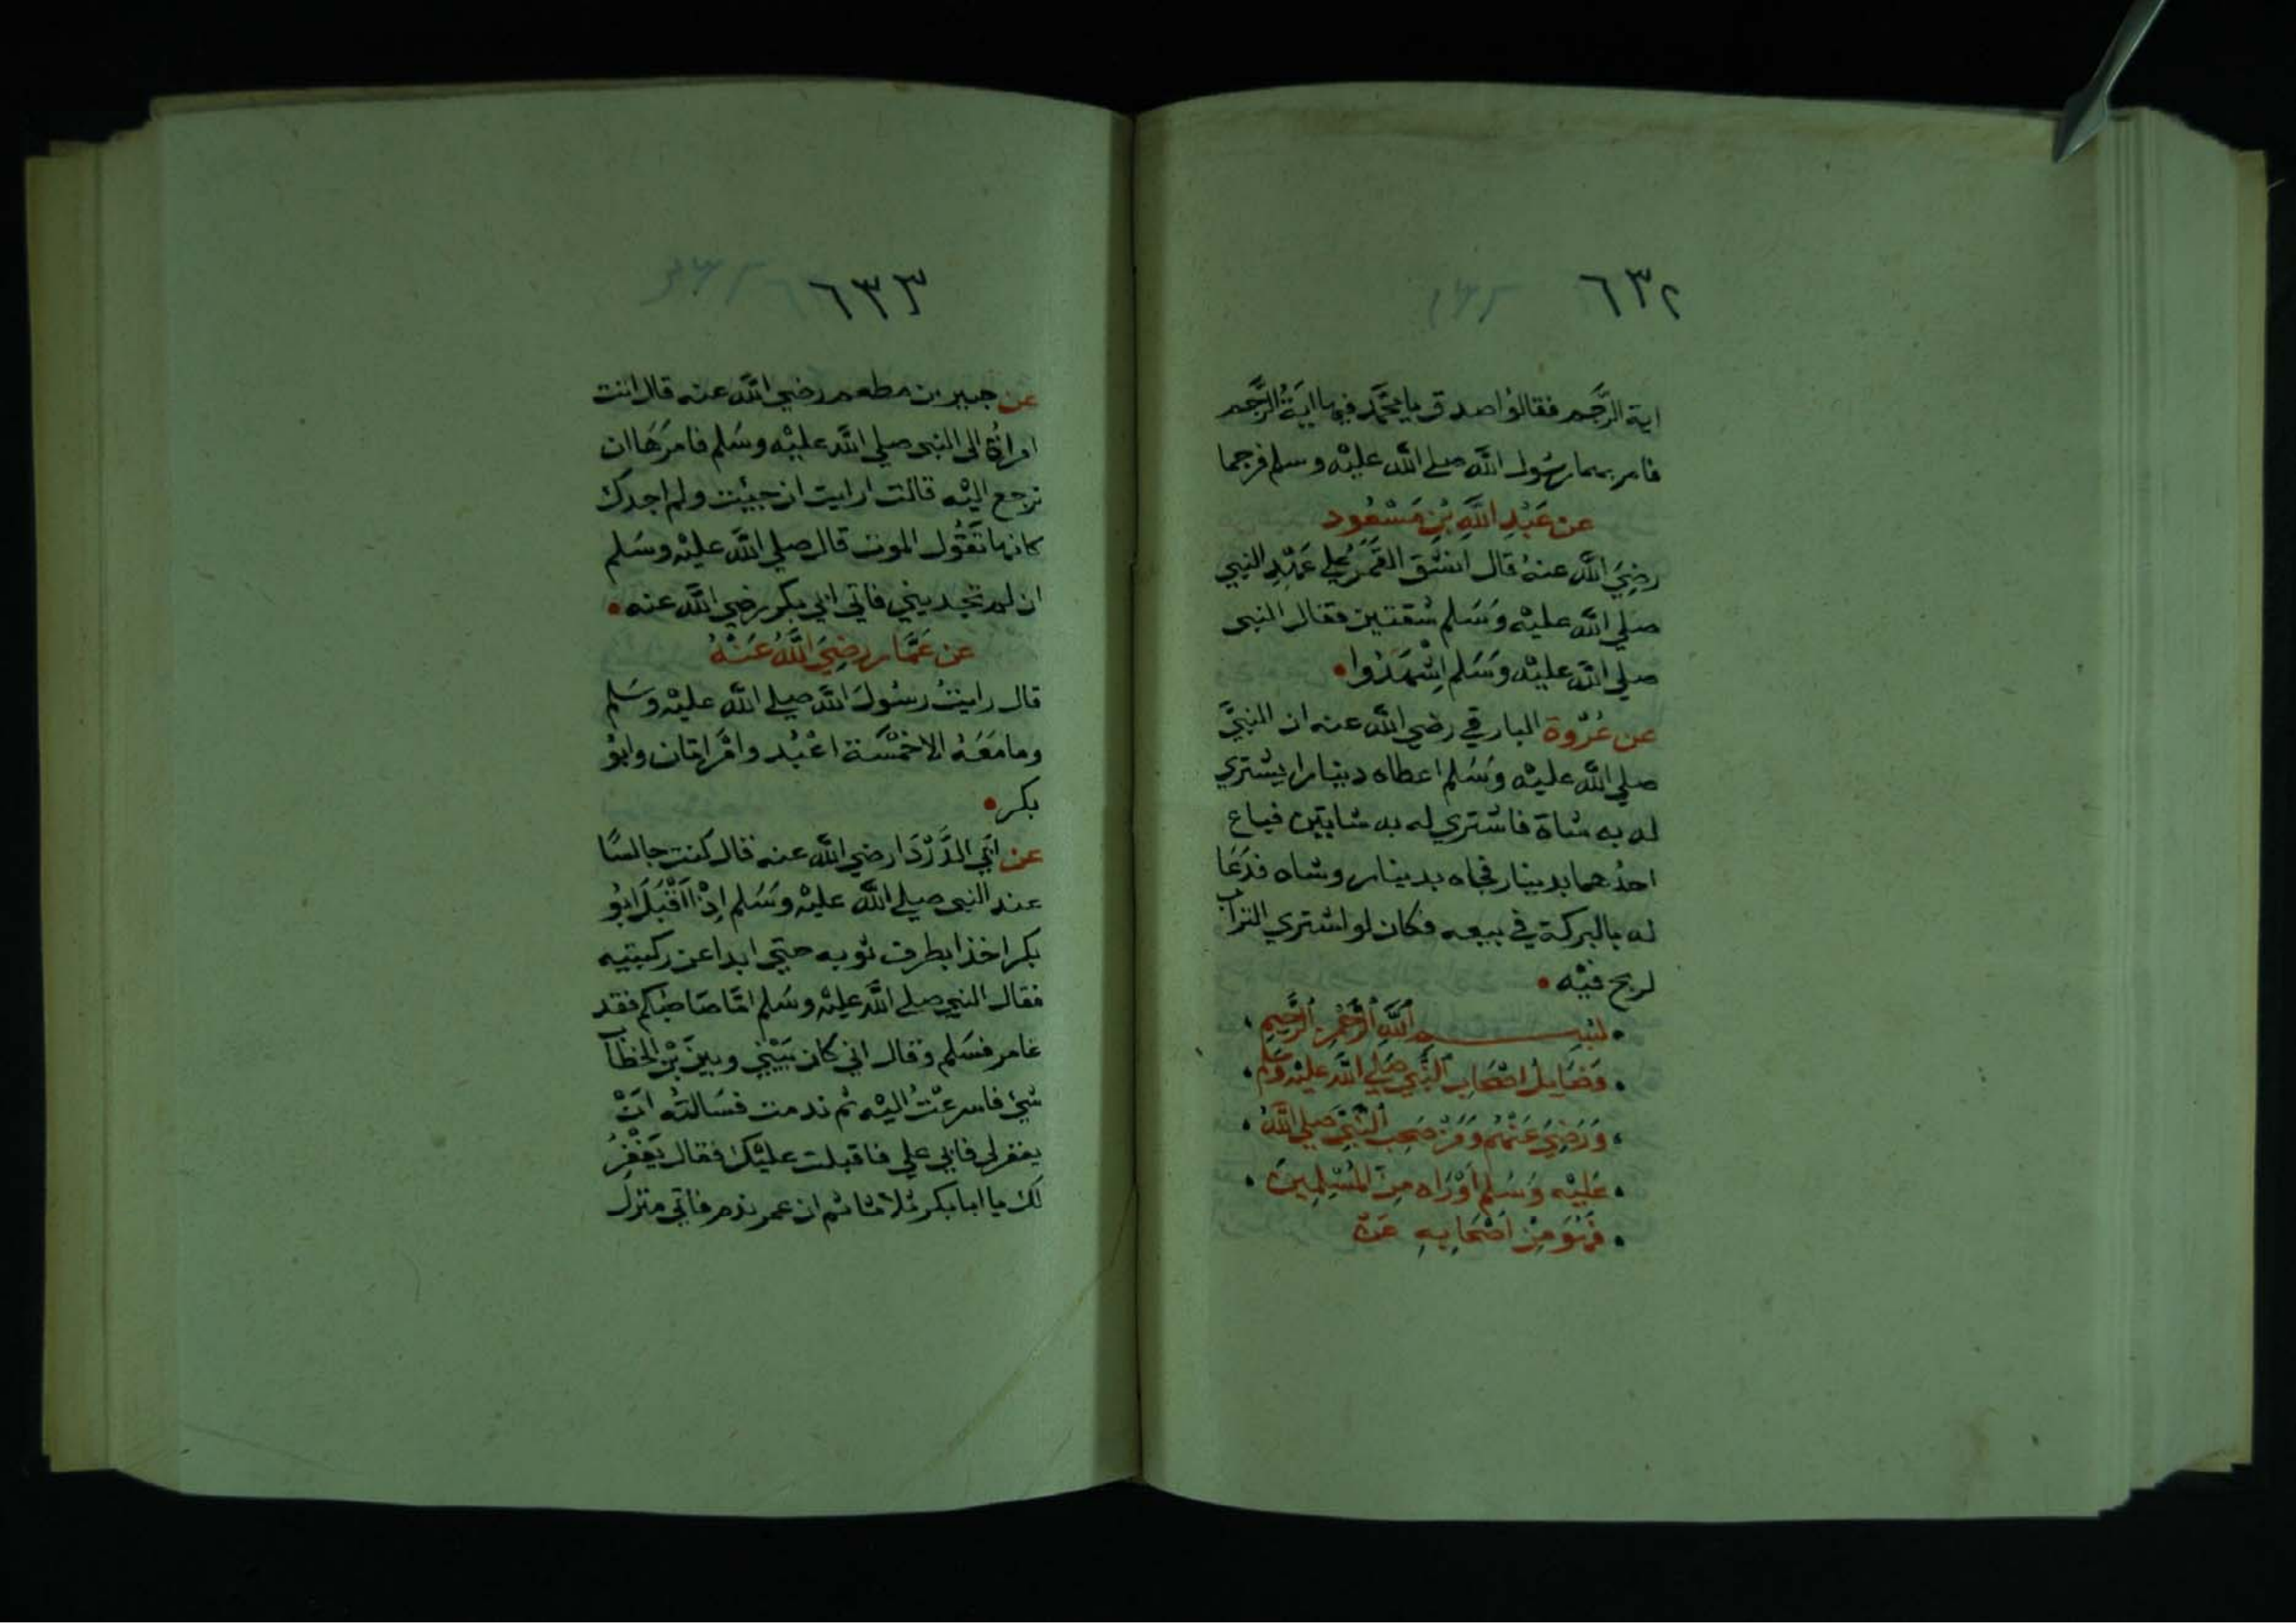 ٦٣٢
اية الرَّجم فقالوُا صدق يا محمَّد فيها اٰيَةُ الرَّجم
فامر بهما رسُول اللّٰه صلے اللّٰه عليْه وسلم فرجما
عن عَبْدِ اللَّهِ بْنِ مَسْعُود
رضِيَ اللّٰه عنهُ قال انشق القَمَرُ علي عَهْدِ النبِي
صلي اللّٰه عليْه وَسَلم شقتين فقال النبى
صلي اللّٰه عليْه وَسَلم اِشْهَدُوا
عن عُرْوة البارقي رضي اللّٰه عنه ان النبيَّ
صلي اللّٰه عليْه وَسَلم اعطاه دينارا يشتري
له به شاة فاشتري له به شاتين فباع
احدُهما بدينار فجاه بدينار وشاه فدَعَا
له بالبركة في بيعه فكان لو اشتري التراب
لربح فيْه
بسم اللّٰه الرَّحمٰن الرَّحِيمِ
فضَايل اصْحَاب النَّبي صَلي اللّٰه عليْه وسَلم
وَرَضِيَ عَنْهُم وَمَنْ صَحِبَ النَّبيَّ صَلي اللّٰهُ
عَليْه وَسَلم اَوْ رَاه مِنَ المُسْلِمِينَ
فَهُوَ مِنْ اَصْحَابِهِ عَنْ
٦٣٣
عن جبير بن مطعم رضي اللّٰه عنه قال اتت
امراةٌ الى النبى صلي اللّٰه عليْه وسَلم فامرَهَا ان
ترجع اليْه قالت ارايت ان جئت ولم اجدك
كانها تَقُول الموت قال صلي اللّٰه عليْه وسَلم
ان لم تجديني فاتي ابي بكر رضي اللّٰه عنه
عن عَمَّار رضِيَ اللَّهُ عَنْهُ
قال رايتُ رسُولَ اللّٰه صلے اللّٰه عليْه وسَلم
وما مَعَهُ الا خمْسَة اعْبُد وامْراتان وابوُ
بكر
عن اَبي الدَّرْدَا رضي اللّٰه عنه قال كنت جالسًا
عند النبى صلے اللّٰه عليْه وَسَلم اِذْ اَقْبَلَ ابوُ
بكر اخذا بطرف ثوبه حتي ابدا عن ركبتيه
فقال النبي صلے اللّٰه عليْه وسَلم امَّا صَاحبكم فقد
غامر فسَلم وقال اني كان بَيْني وبينَ بْن الخطاب
شئ فاسرعْتُ اليْه ثم ندمت فسَالتُه اَنْ
يغفر لى فابي علي فاقبلت عليْك فقال يَغْفِرُ
لك يا ابا بكر ثلاثا ثم ان عمر ندم فاتي منزل